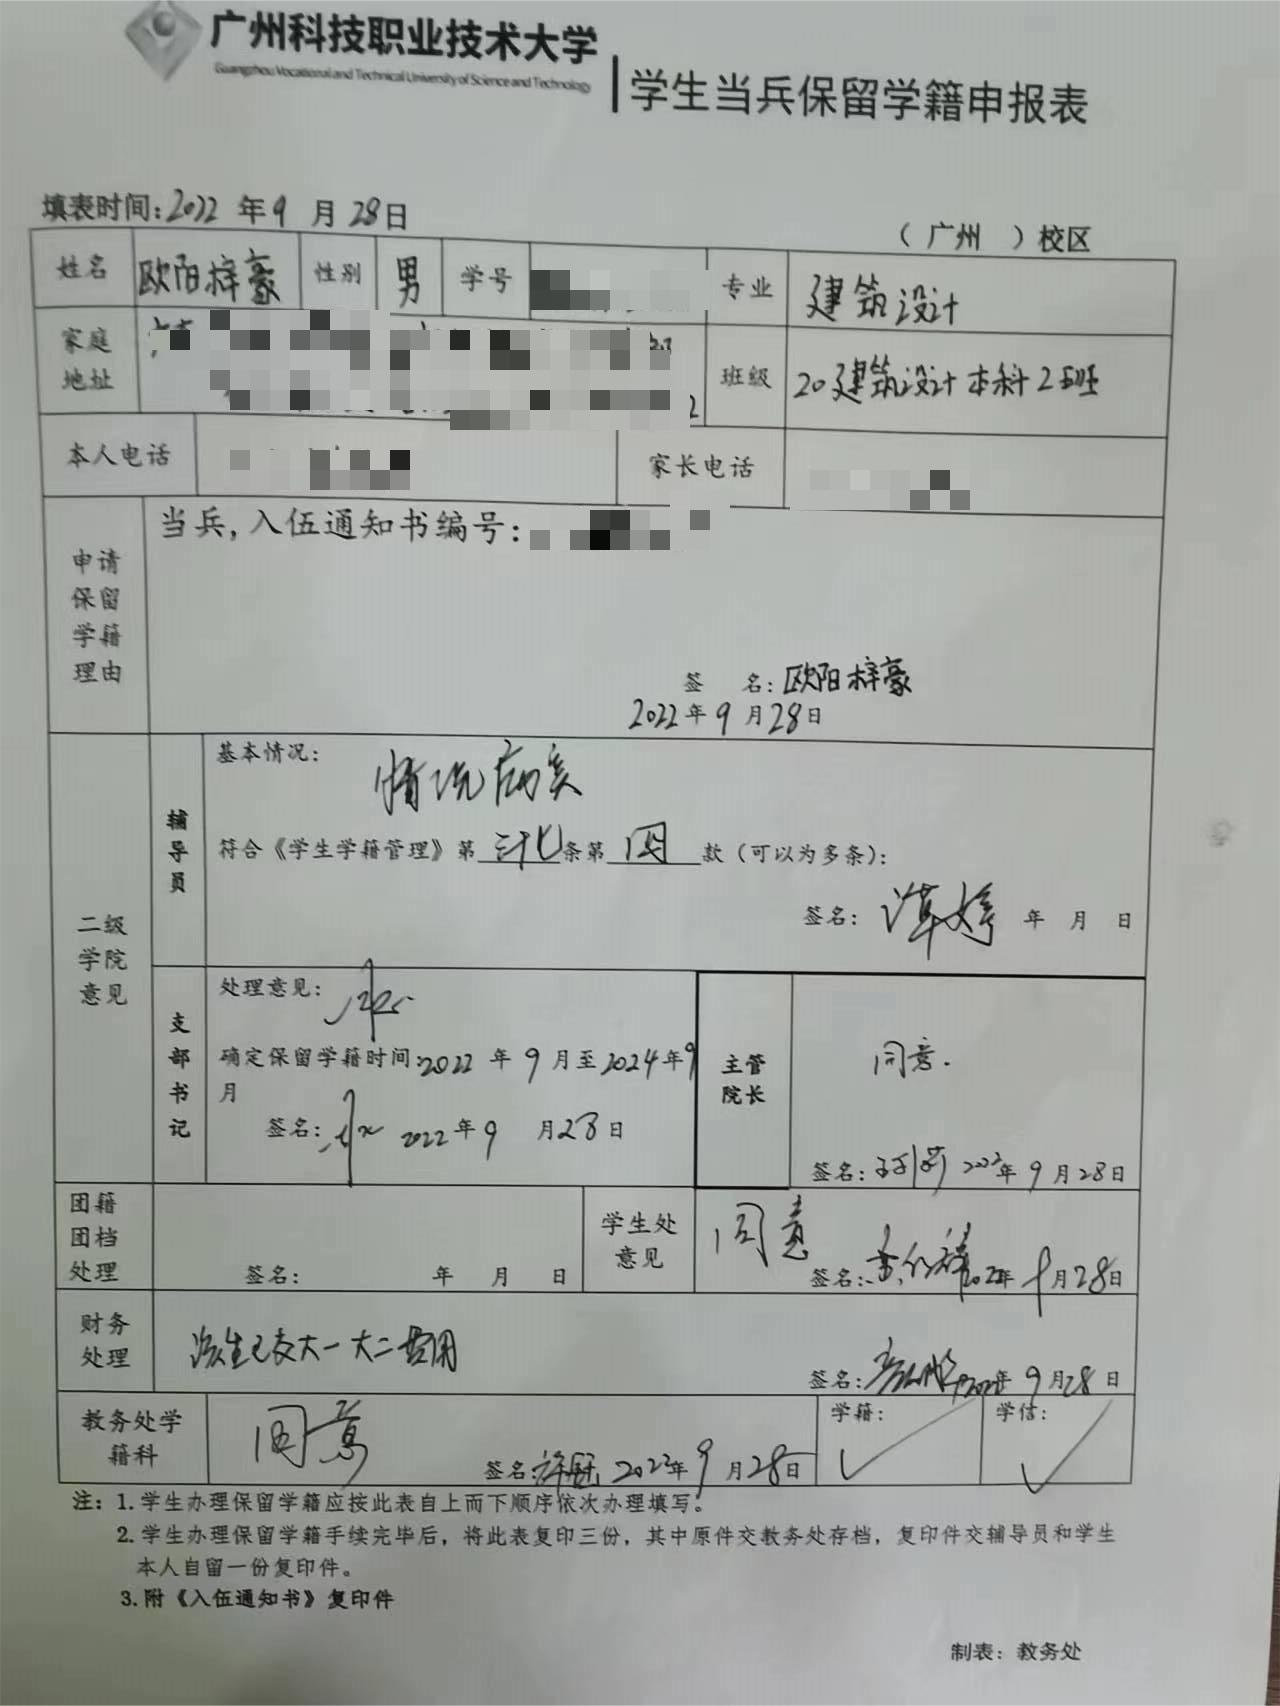 广州科技职业技术大学
Guangzhou Vocational and Technical University of Science and Technology
学生当兵保留学籍申报表
填表时间:2022 年 9 月 28 日
( 广州 ) 校区
姓名 欧阳梓豪 性别 男 学号 专业 建筑设计
家庭地址 班级 20建筑设计本科2班
本人电话 家长电话
申请保留学籍理由
当兵,入伍通知书编号:
签 名: 欧阳梓豪
2022 年 9 月 28 日
二级学院意见
辅导员
基本情况:
情况属实
符合《学生学籍管理》第 条第 四 款(可以为多条):
签名: 谭婷 年 月 日
支部书记
处理意见:
确定保留学籍时间:2022 年 9 月至 2024 年 9
月
签名: 2022 年 9 月 28 日
主管院长
同意.
签名: 2022 年 9 月 28 日
团籍团档处理
签名: 年 月 日
学生处意见
同意
签名: 2022 年 9 月 28 日
财务处理
该生已交大一大二费用
签名: 2022 年 9 月 28 日
教务处学籍科
同意
签名: 2022 年 9 月 28 日
学籍: ✓
学信: ✓
注: 1.学生办理保留学籍应按此表自上而下顺序依次办理填写。
2.学生办理保留学籍手续完毕后,将此表复印三份,其中原件交教务处存档,复印件交辅导员和学生
本人自留一份复印件。
3.附《入伍通知书》复印件
制表:教务处